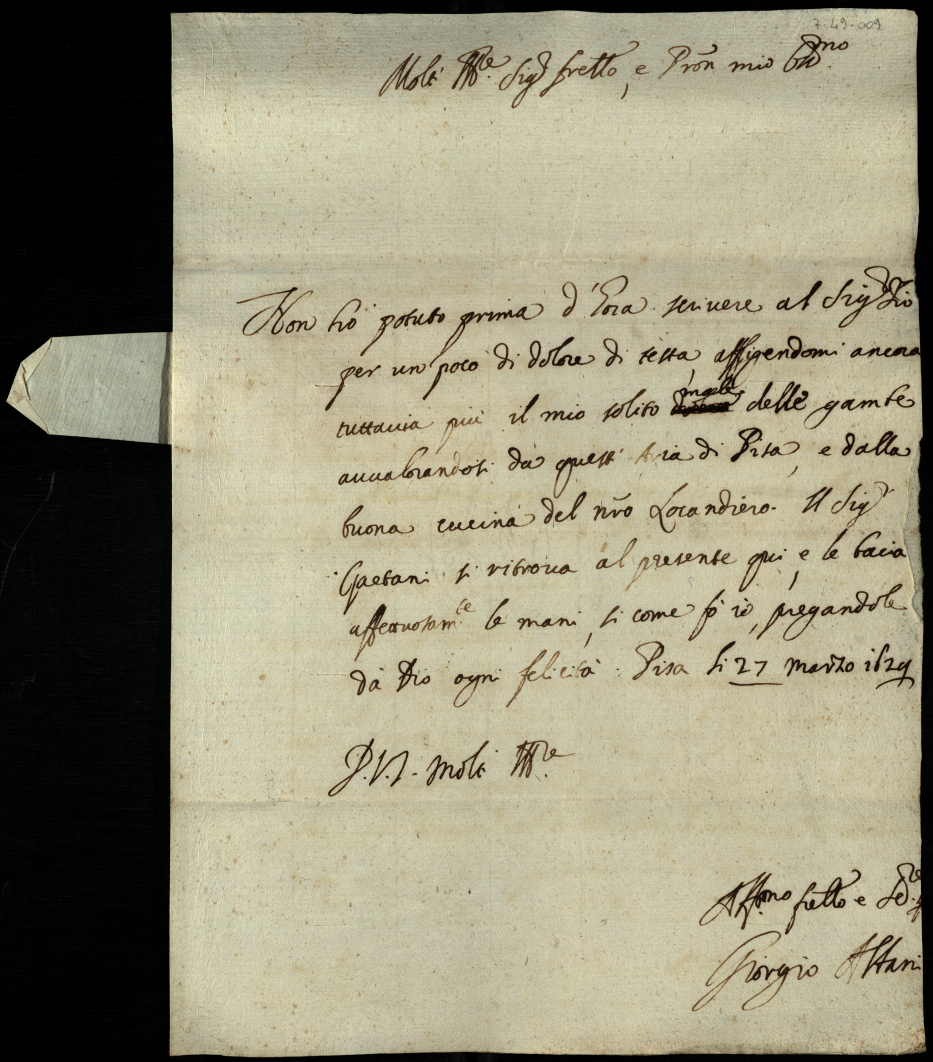 7-49-009
Molt Ill.re Sig.r fretto, e Pron mio oss.mo
Non hò potuto prima d'hora scrivere al Sig.r Zio
per un poco di dolore di testa, affligendomi ancora
tuttavia più il mio solito male delle gambe
avvalorandosi da quest' Aria di Pisa, e dalla
buona cucina del nro Locandiero. Il Sig.r
Gaetani si ritrova al presente qui, e le bacia
affettuosam.te le mani, si come fò io, pregandole
da Dio ogni felicità. Pisa li 27 marzo 1629
D.V.S. Molt Ill.re
Aff.mo fretto e Se.re
Giorgio Altani